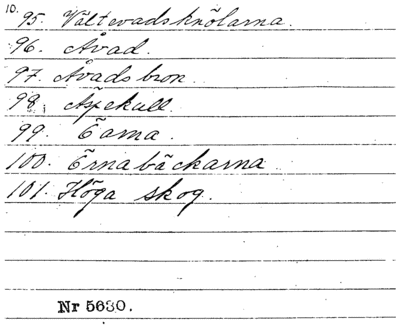 10.
95. Vältevadsknölarna.
96. Åvad.
97. Åvadsbron.
98. Aspekull.
99. Ёarna.
100. Ёrnabäckarna
101. Höga skog.
Nr 5630.